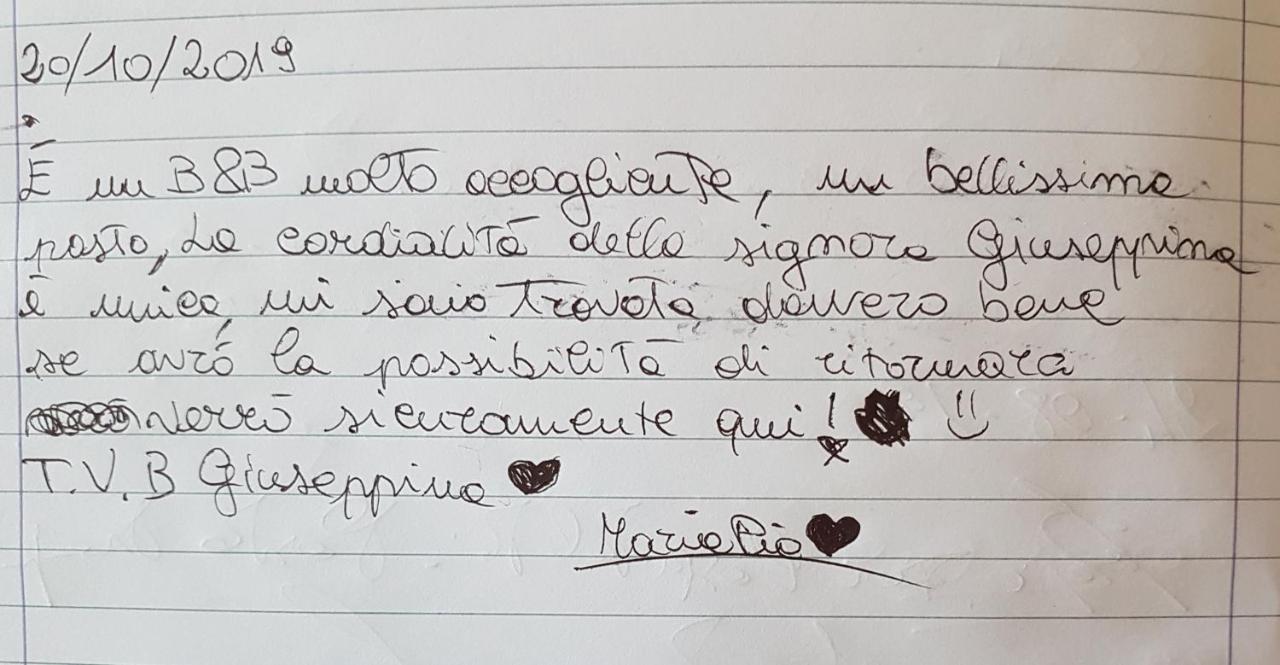 20/10/2019
È un B&B molto accogliente, un bellissimo
posto, La cordialità della signora Giuseppina
è unica, mi sono trovata davvero bene
se avrò la possibilità di ritornare
verrò sicuramente qui!
T.V.B Giuseppina
Maria Pia